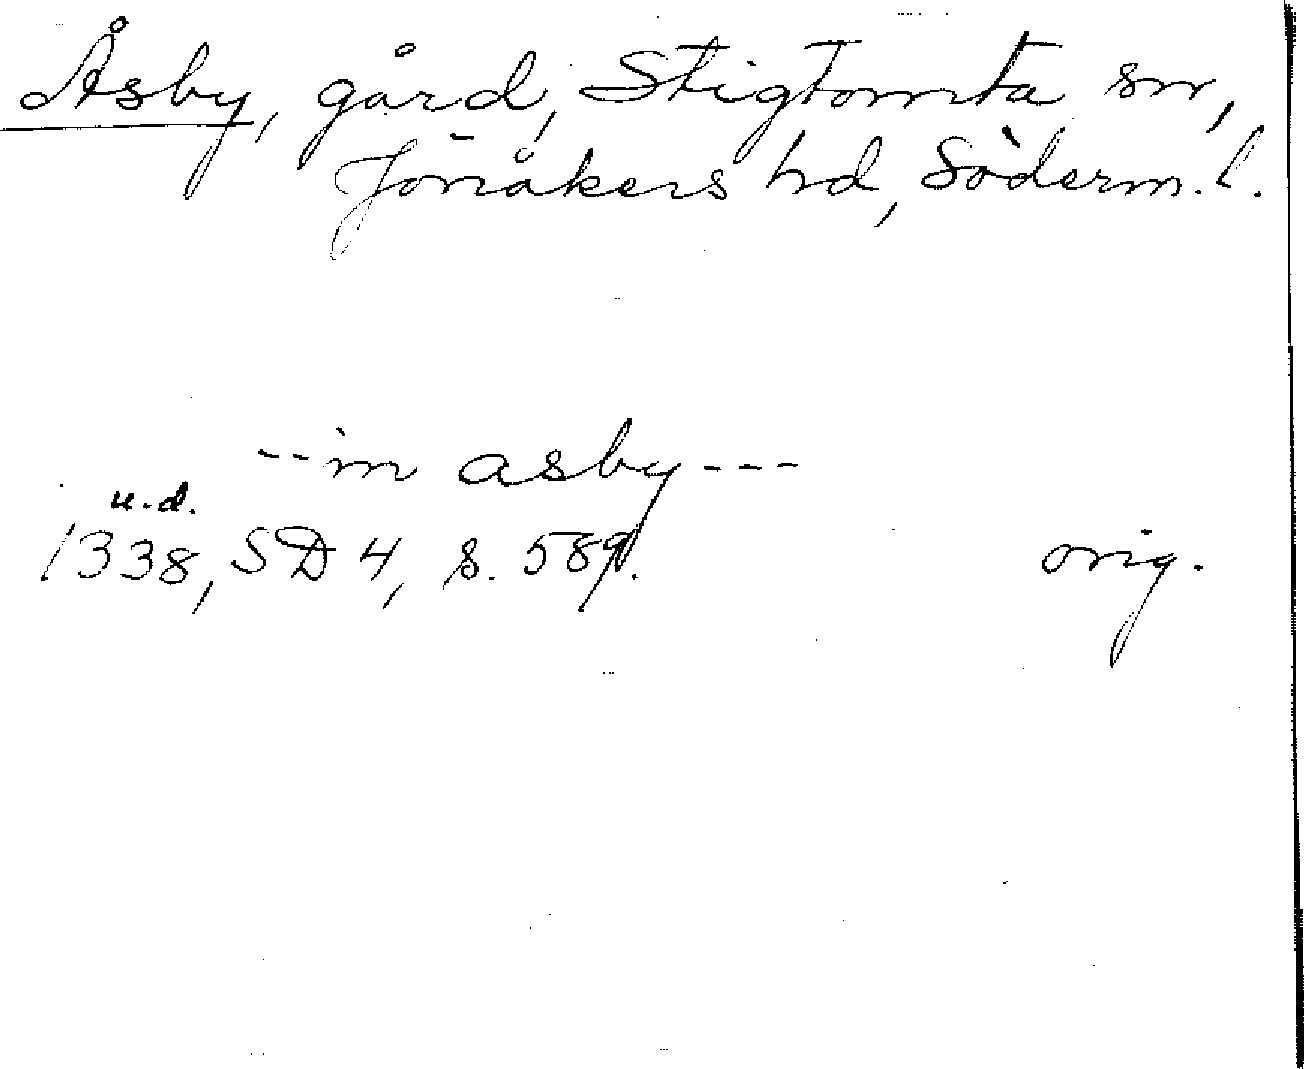 Åsby, gård, Stigtomta sn,
Jönåkers hd, Söderm. l.
-- in asby ---
u.d.
1338, SD 4, s. 589.
orig.